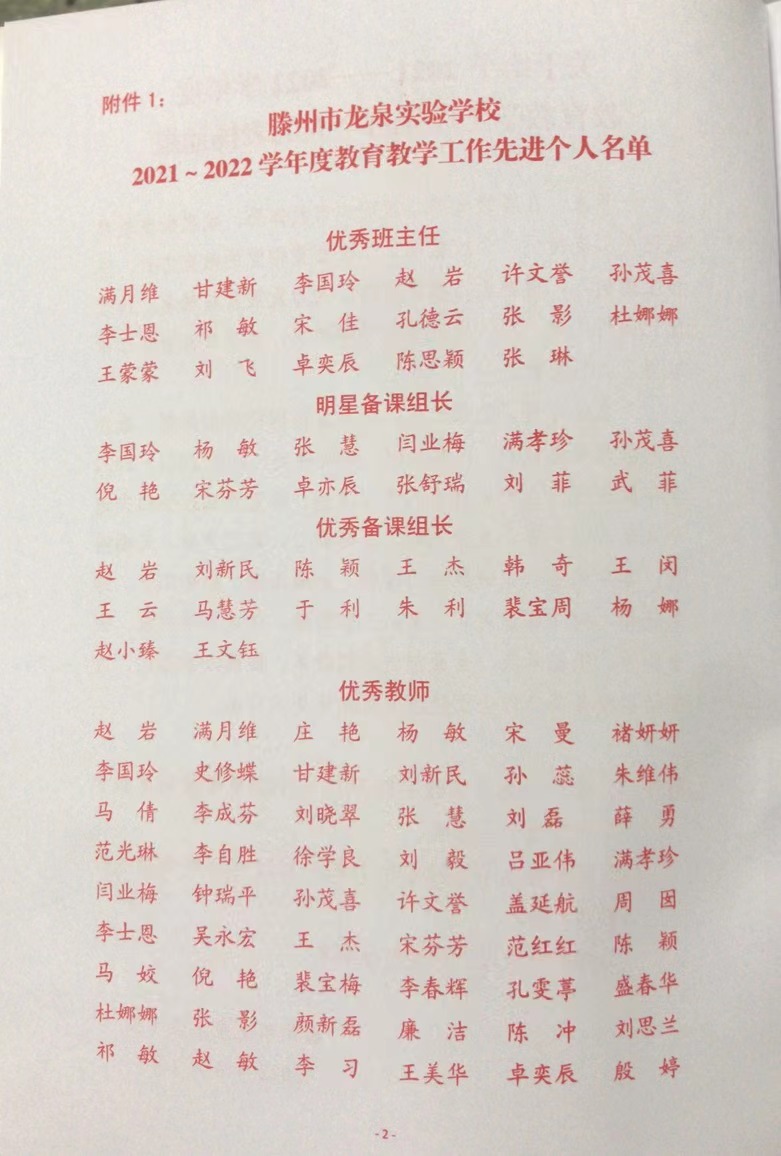 附件 1：
滕州市龙泉实验学校
2021～2022 学年度教育教学工作先进个人名单
优秀班主任
满月维 甘建新 李国玲 赵 岩 许文誉 孙茂喜
李士恩 祁 敏 宋 佳 孔德云 张 影 杜娜娜
王蒙蒙 刘 飞 卓奕辰 陈思颖 张 琳
明星备课组长
李国玲 杨 敏 张 慧 闫业梅 满孝珍 孙茂喜
倪 艳 宋芬芳 卓亦辰 张舒瑞 刘 菲 武 菲
优秀备课组长
赵 岩 刘新民 陈 颖 王 杰 韩 奇 王 闵
王 云 马慧芳 于 利 朱 利 裴宝周 杨 娜
赵小臻 王文钰
优秀教师
赵 岩 满月维 庄 艳 杨 敏 宋 曼 褚妍妍
李国玲 史修蝶 甘建新 刘新民 孙 蕊 朱维伟
马 倩 李成芬 刘晓翠 张 慧 刘 磊 薛 勇
范光琳 李自胜 徐学良 刘 毅 吕亚伟 满孝珍
闫业梅 钟瑞平 孙茂喜 许文誉 盖延航 周 囡
李士恩 吴永宏 王 杰 宋芬芳 范红红 陈 颖
马 姣 倪 艳 裴宝梅 李春辉 孔雯葶 盛春华
杜娜娜 张 影 颜新磊 廉 洁 陈 冲 刘思兰
祁 敏 赵 敏 李 习 王美华 卓奕辰 殷 婷
- 2 -